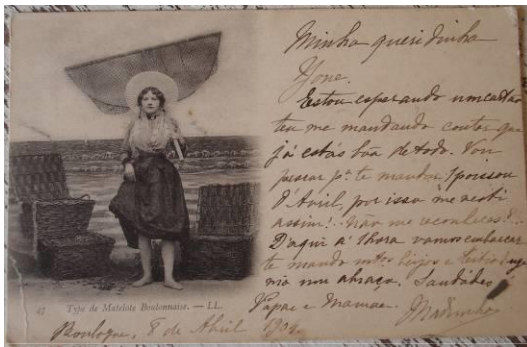 Minha queridinha
Yone.
Estou esperando um cartão
teu me mandando contar que
já estás boa de todo. Vou
passar
d'Avril, por isso me vesti
assim! Não me reconheces?
D'aqui a 1 hora vamos embarcar
te mando mtos beijos e
um abraço. Saudades
Papae e Mamae.
Madrinha
47 Type de Matelote Boulonnaise. — LL.
Boulogne, 8 de Abril